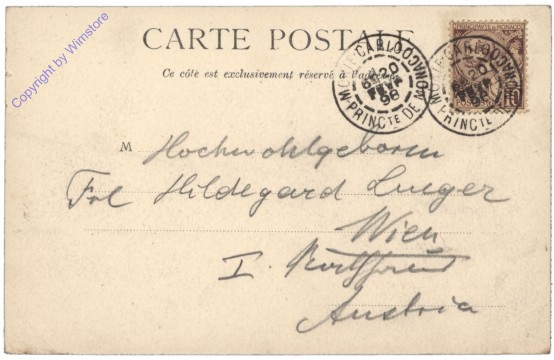 Copyright by Wimstore
CARTE POSTALE
Ce côté est exclusivement réservé à l'adresse
MONTE-CARLO
20
FEVR
98
PRINCTE DE MONACO
MONTE-CARLO
20
98
PRINCTE DE MONACO
10
M Hochwohlgeboren
Frl Hildegard Lueger
Wien
I.
Austria